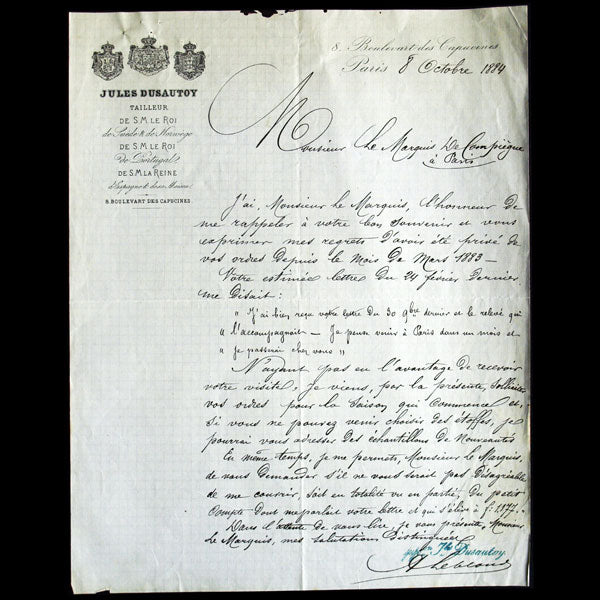 JULES DUSAUTOY
TAILLEUR
DE S.M. LE ROI
de Suède & de Norwège
DE S.M. LE ROI
de Portugal
DE S.M. LA REINE
d'Espagne & de sa Maison
8. BOULEVART DES CAPUCINES
8. Boulevart des Capucines
Paris 8 Octobre 1884
Monsieur Le Marquis De Compiègne
à Paris
J'ai, Monsieur le Marquis, l'honneur de
me rappeler à votre bon souvenir et vous
exprimer mes regrets d'avoir été privé de
vos ordres depuis le Mois de Mars 1883 —
Votre estimée lettre du 24 février dernier
me disait :
"J'ai bien reçu votre lettre du 30 9bre dernier et le relevé qui
" l'accompagnait — Je pense venir à Paris dans un mois et
" je passerai chez vous "
N'ayant pas eu l'avantage de recevoir
votre visite, Je viens, par la présente, solliciter
vos ordres pour la Saison qui commence et,
si vous ne pouvez venir choisir des étoffes, je
pourrai vous adresser des échantillons de Nouveautés
En même temps, je me permets, Monsieur le Marquis,
de vous demander s'il ne vous serait pas désagréable
de me couvrir, soit en totalité ou en partie, du petit
Compte dont me parlait votre lettre et qui s'élève à f. 1877. —
Dans l'attente de vous lire, je vous présente, Monsieur
Le Marquis, mes salutations distinguées
Dusautoy
A Leblond